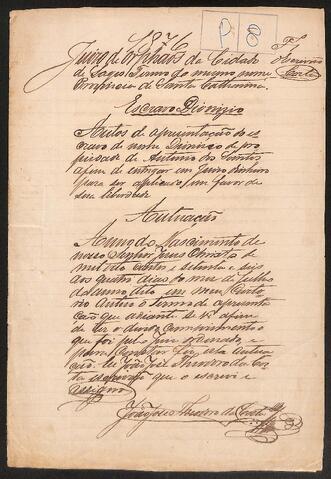 1876
P 8
Juizo de Orphãos da Cidade
de Lages Termo do mesmo nome
Provincia de Santa Catharina
Escravo Dionizio
Autos de apresentação do es
cravo de nome Dionizio de pro
priedade de Antonio dos Santos
afim de entregar em Juizo dinheiro
para ser aplicado em favor de
sua liberdade
Autuação
Anno do Nascimento de
nosso Senhor Jesus Christo de
mil oito centos e setenta e seis
aos quatro dias do mez de Julho
do dito anno, em meu Carto
rio autuei o Termo de apresenta
ção que adiante se vê afim
de ter o devido comprimento o
que foi pelo Juiz ordenado, e
para constar fiz esta autua
ção. Eu João José Theodoro da Cos
ta escrivão que o escrevi e
assigno
João José Theodoro da Costa